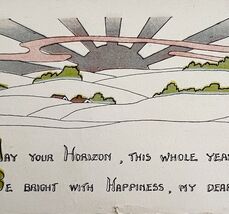 May your Horizon, this whole year
Be bright with Happiness, my dear